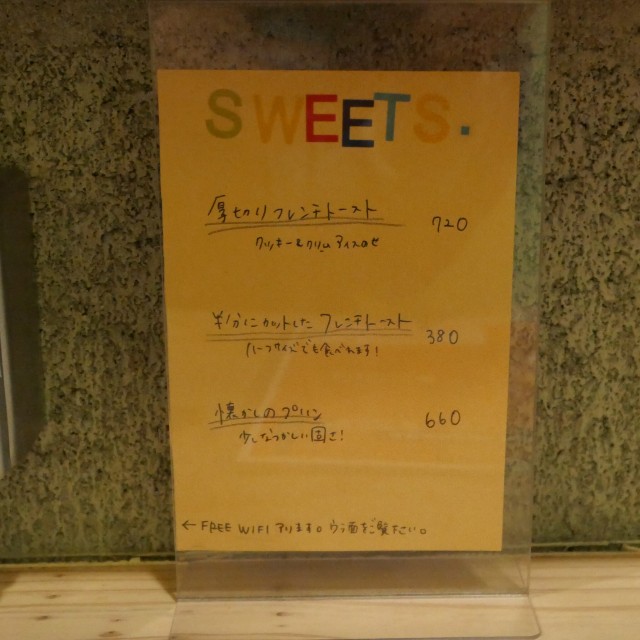 SWEETS.
厚切りフレンチトースト 720
クッキー&クリームアイスのせ
半分にカットしたフレンチトースト 380
ハーフサイズでも食べれます!
懐かしのプリン 660
少しなつかしい固さ!
← FREE WIFI アリます。ウラ面をご覧下さい。